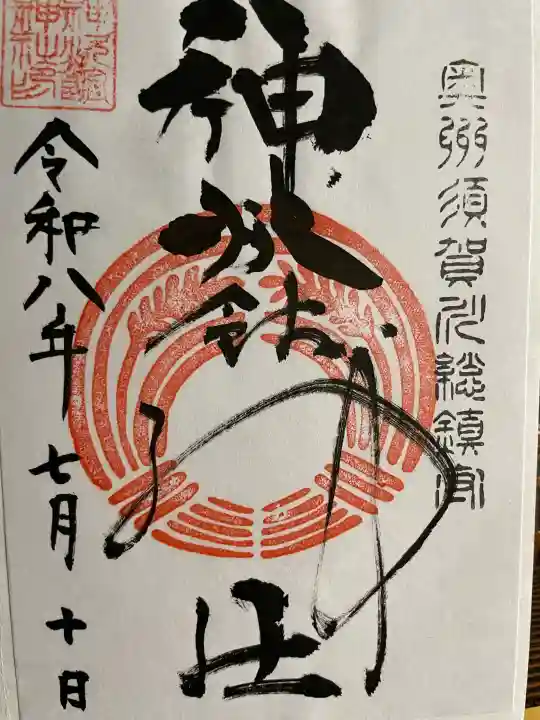 奥州須賀川総鎮守
神炊館神社
令和八年七月十日